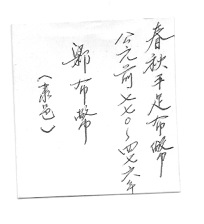 春秋平足布幣
公元前七七〇~四七六年
布幣
邑